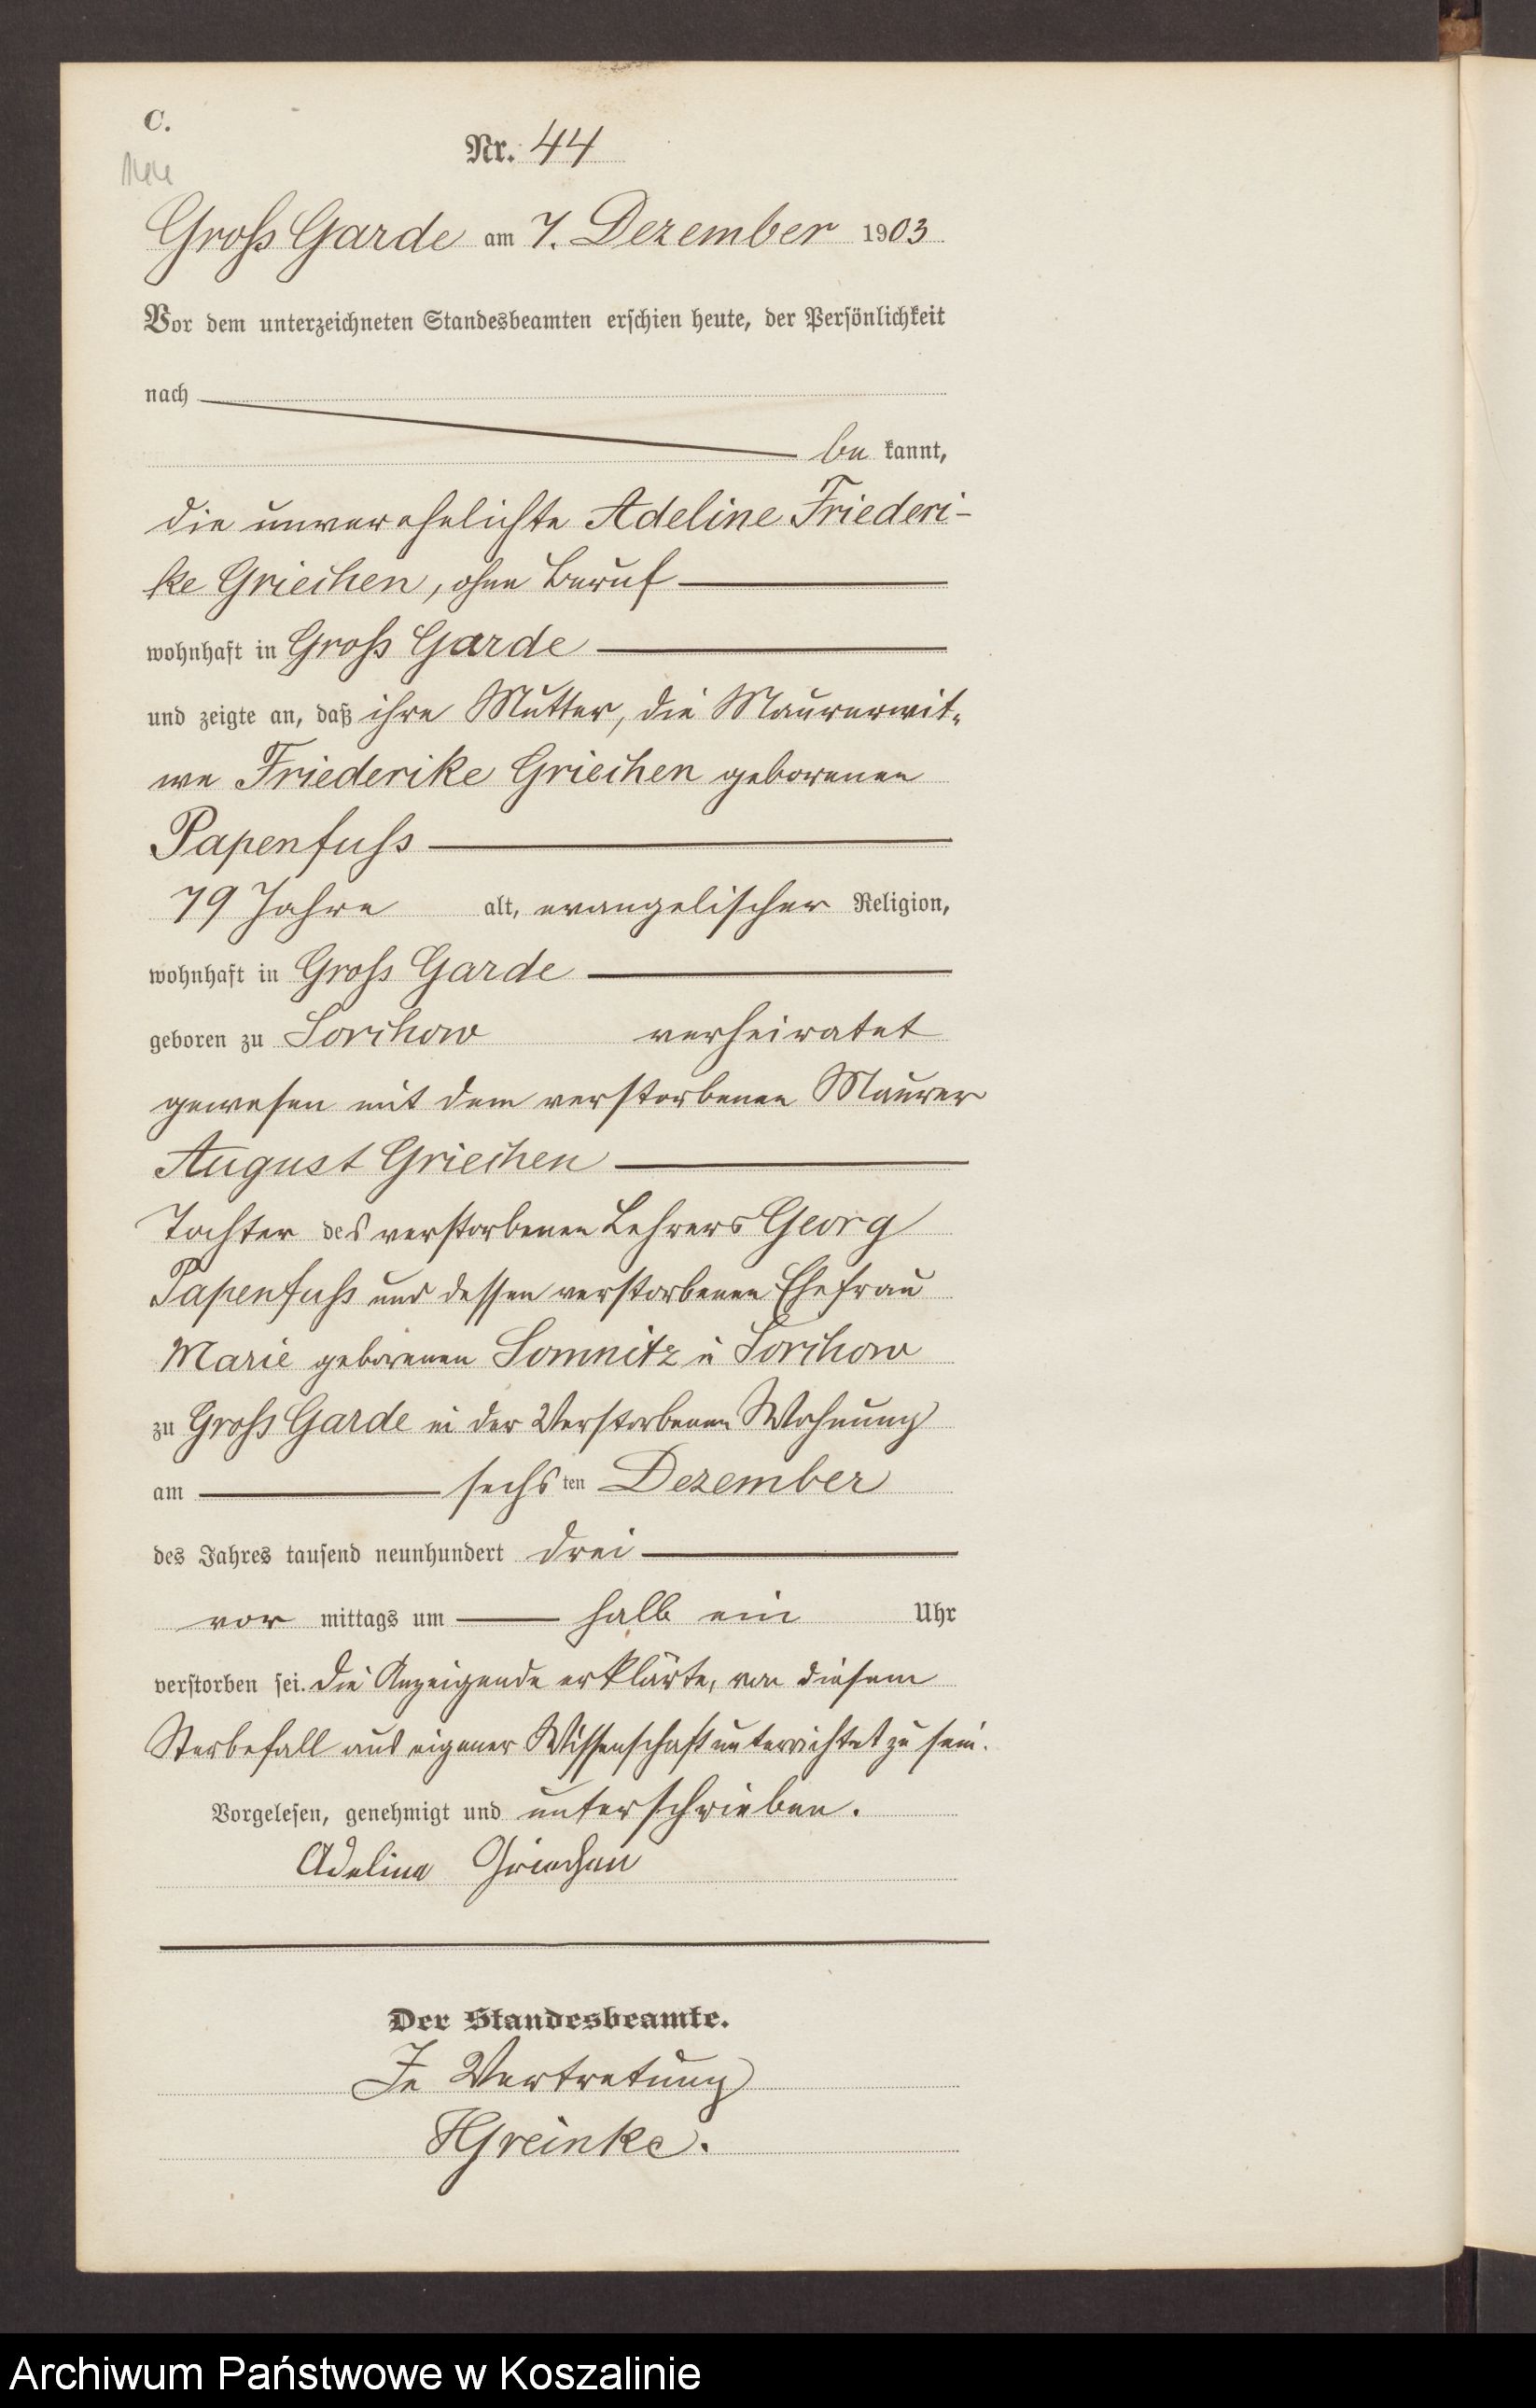 C.
Nr. 44
Gross Garde am 7. Dezember 1903
Vor dem unterzeichneten Standesbeamten erschien heute, der Persönlichkeit
nach
be kannt,
die unverehelichte Adeline Friederi-
ke Griechen, ohne Beruf
wohnhaft in Gross Garde
und zeigte an, daß ihre Mutter, die Maurerwit-
we Friederike Griechen geborenen
Papenfuss
79 Jahre alt, evangelischer Religion,
wohnhaft in Gross Garde
geboren zu Sorchow verheiratet
gewesen mit dem verstorbenen Maurer
August Griechen
Tochter des verstorbenen Lehrers Georg
Papenfuss und dessen verstorbenen Ehefrau
Marie geborenen Somnitz in Sorchow
zu Gross Garde in der Verstorbenen Wohnung
am sechsten Dezember
des Jahres tausend neunhundert drei
vor mittags um halb ein Uhr
verstorben sei. Die Anzeigende erklärte, von diesem
Sterbefall aus eigener Wissenschaft unterrichtet zu sein.
Vorgelesen, genehmigt und unterschrieben.
Adeline Griechen
Der Standesbeamte.
In Vertretung
HGreinke.
Archiwum Państwowe w Koszalinie